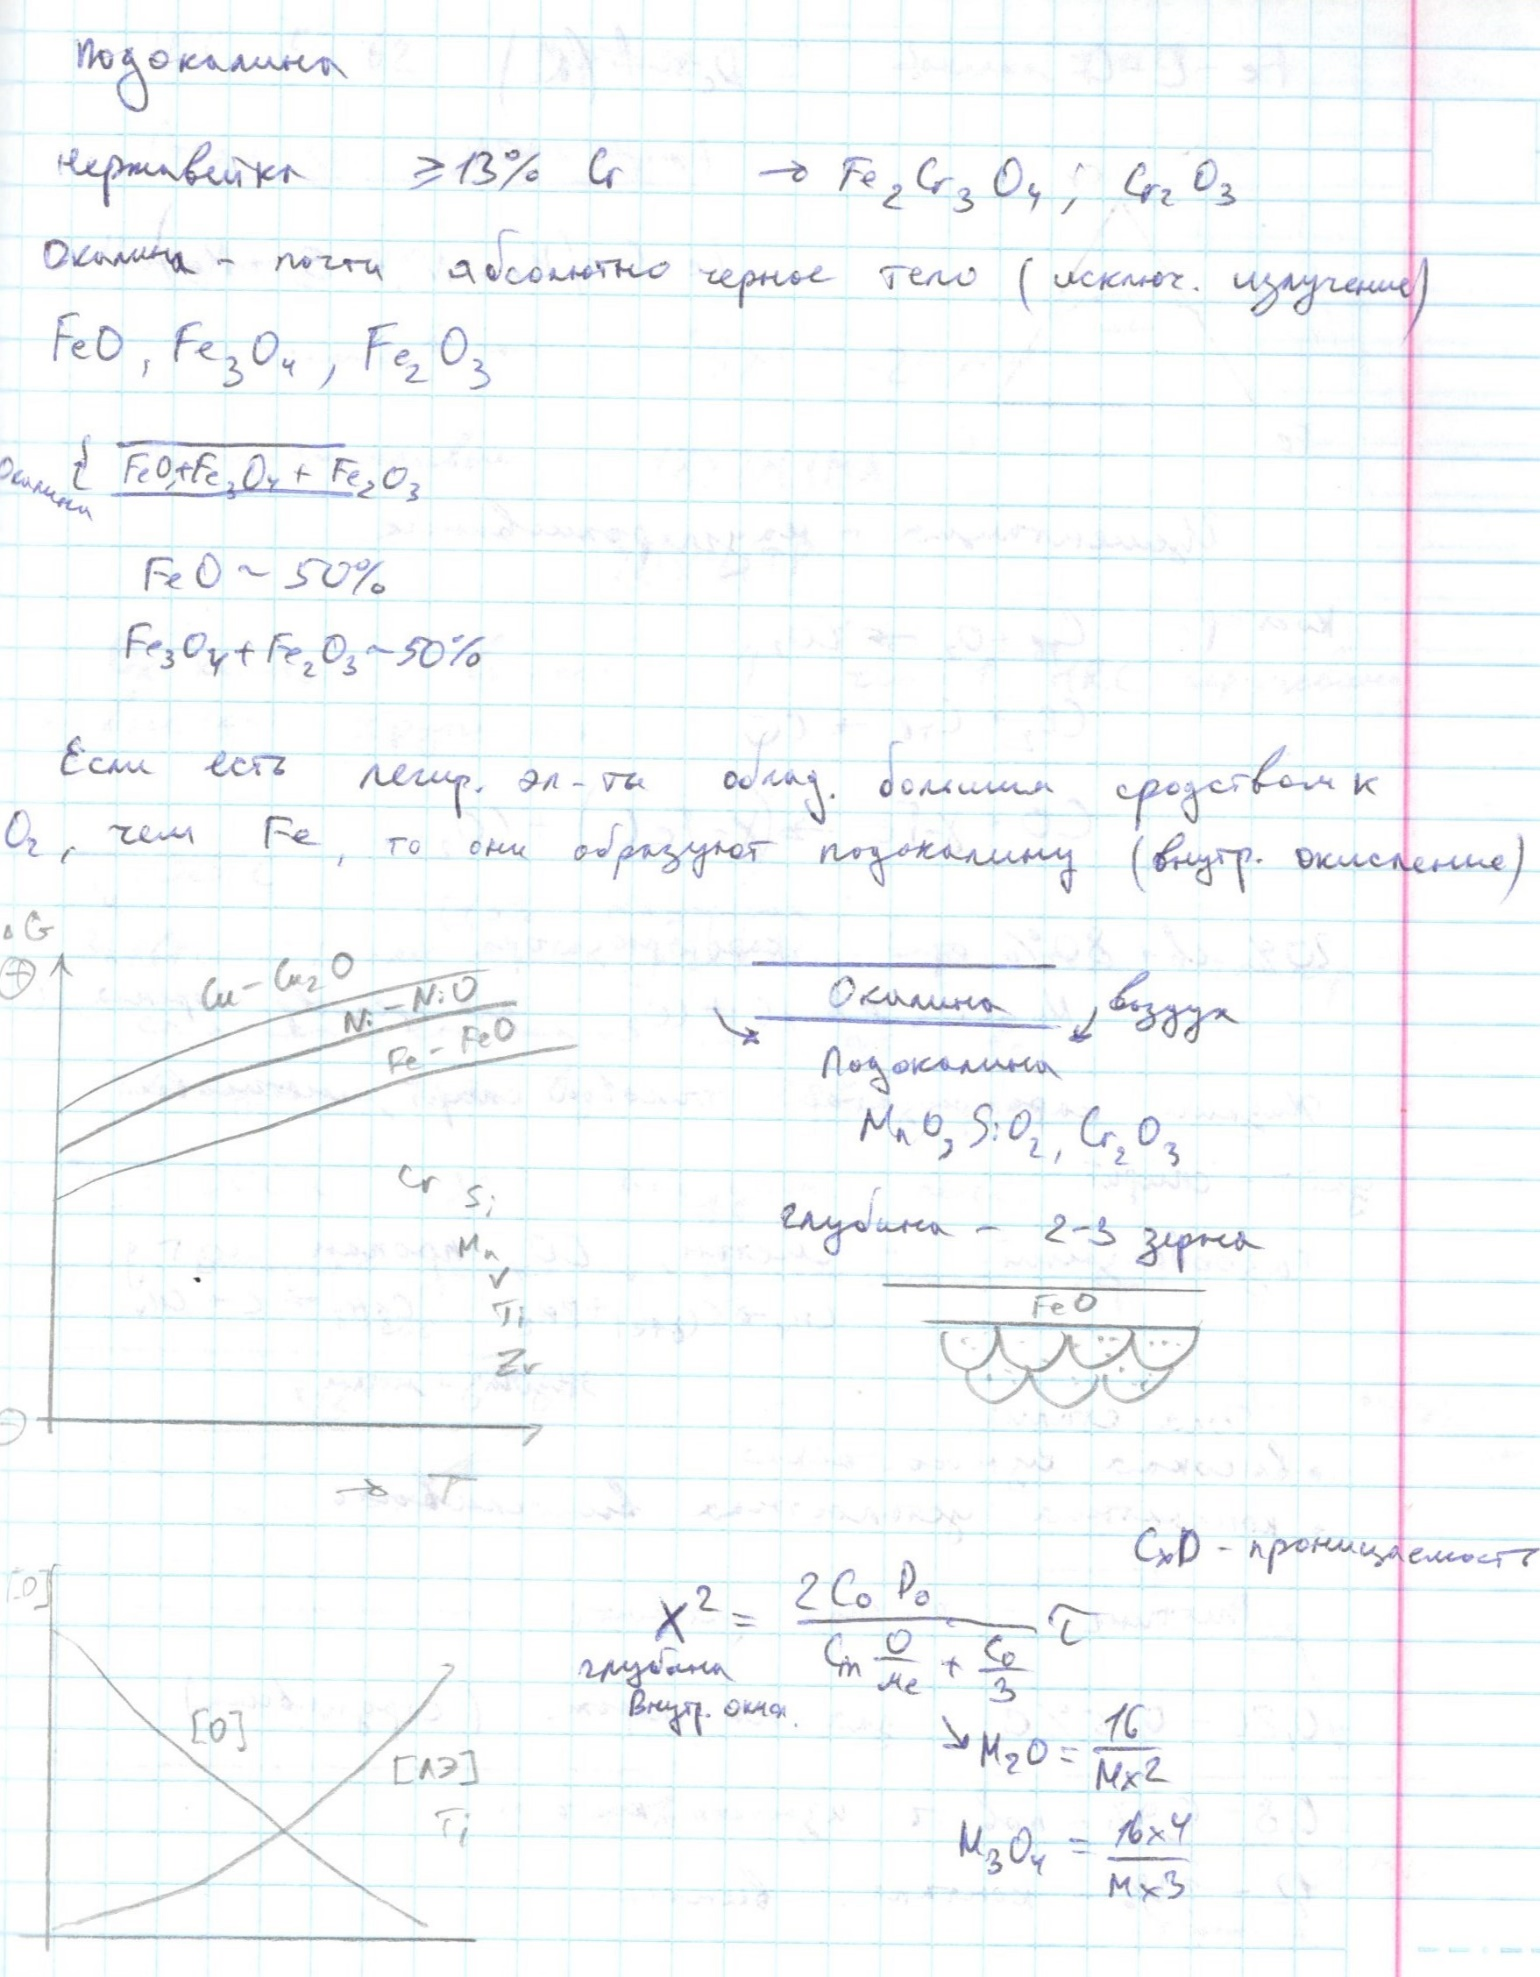 Подокалина
нержавейка ≥13% Cr → Fe2Cr3O4; Cr2O3
Окалина - почти абсолютно черное тело (исключ. излучение)
FeO, Fe3O4, Fe2O3
Окалина { FeO+Fe3O4 + Fe2O3
FeO ~ 50%
Fe3O4+Fe2O3 ~50%
Если есть легир. эл-ты облад. большим сродством к
O2, чем Fe, то они образуют подокалину (внутр. окисление)
ΔG
⊕
Cu-Cu2O
Ni-NiO
Fe-FeO
Cr
Si
Mn
V
Ti
Zr
⊖
→ T
Окалина воздух
Подокалина
MnO, SiO2, Cr2O3
глубина - 2-3 зерна
FeO
CxD - проницаемость
X² = 2 Co Do / (Cm O/Me + Co/3) τ
глубина
Внутр. окисл.
↘ M2O = 16 / Mx2
M3O4 = 16x4 / Mx3
[O]
[O]
[ЛЭ]
Ti